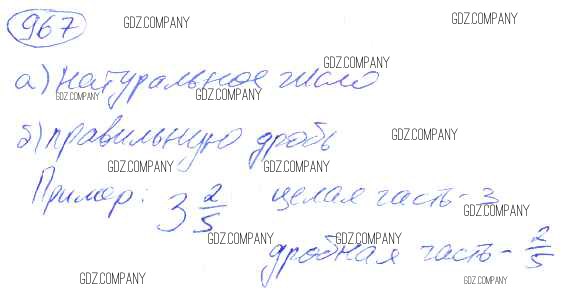 967
GDZ.COMPANY GDZ.COMPANY
GDZ.COMPANY
а) натуральное число
GDZ.COMPANY GDZ.COMPANY
б) правильную дробь
GDZ.COMPANY
GDZ.COMPANY GDZ.COMPANY
Пример: 3 2/5 целая часть - 3
GDZ.COMPANY
GDZ.COMPANY GDZ.COMPANY
дробная часть - 2/5
GDZ.COMPANY GDZ.COMPANY